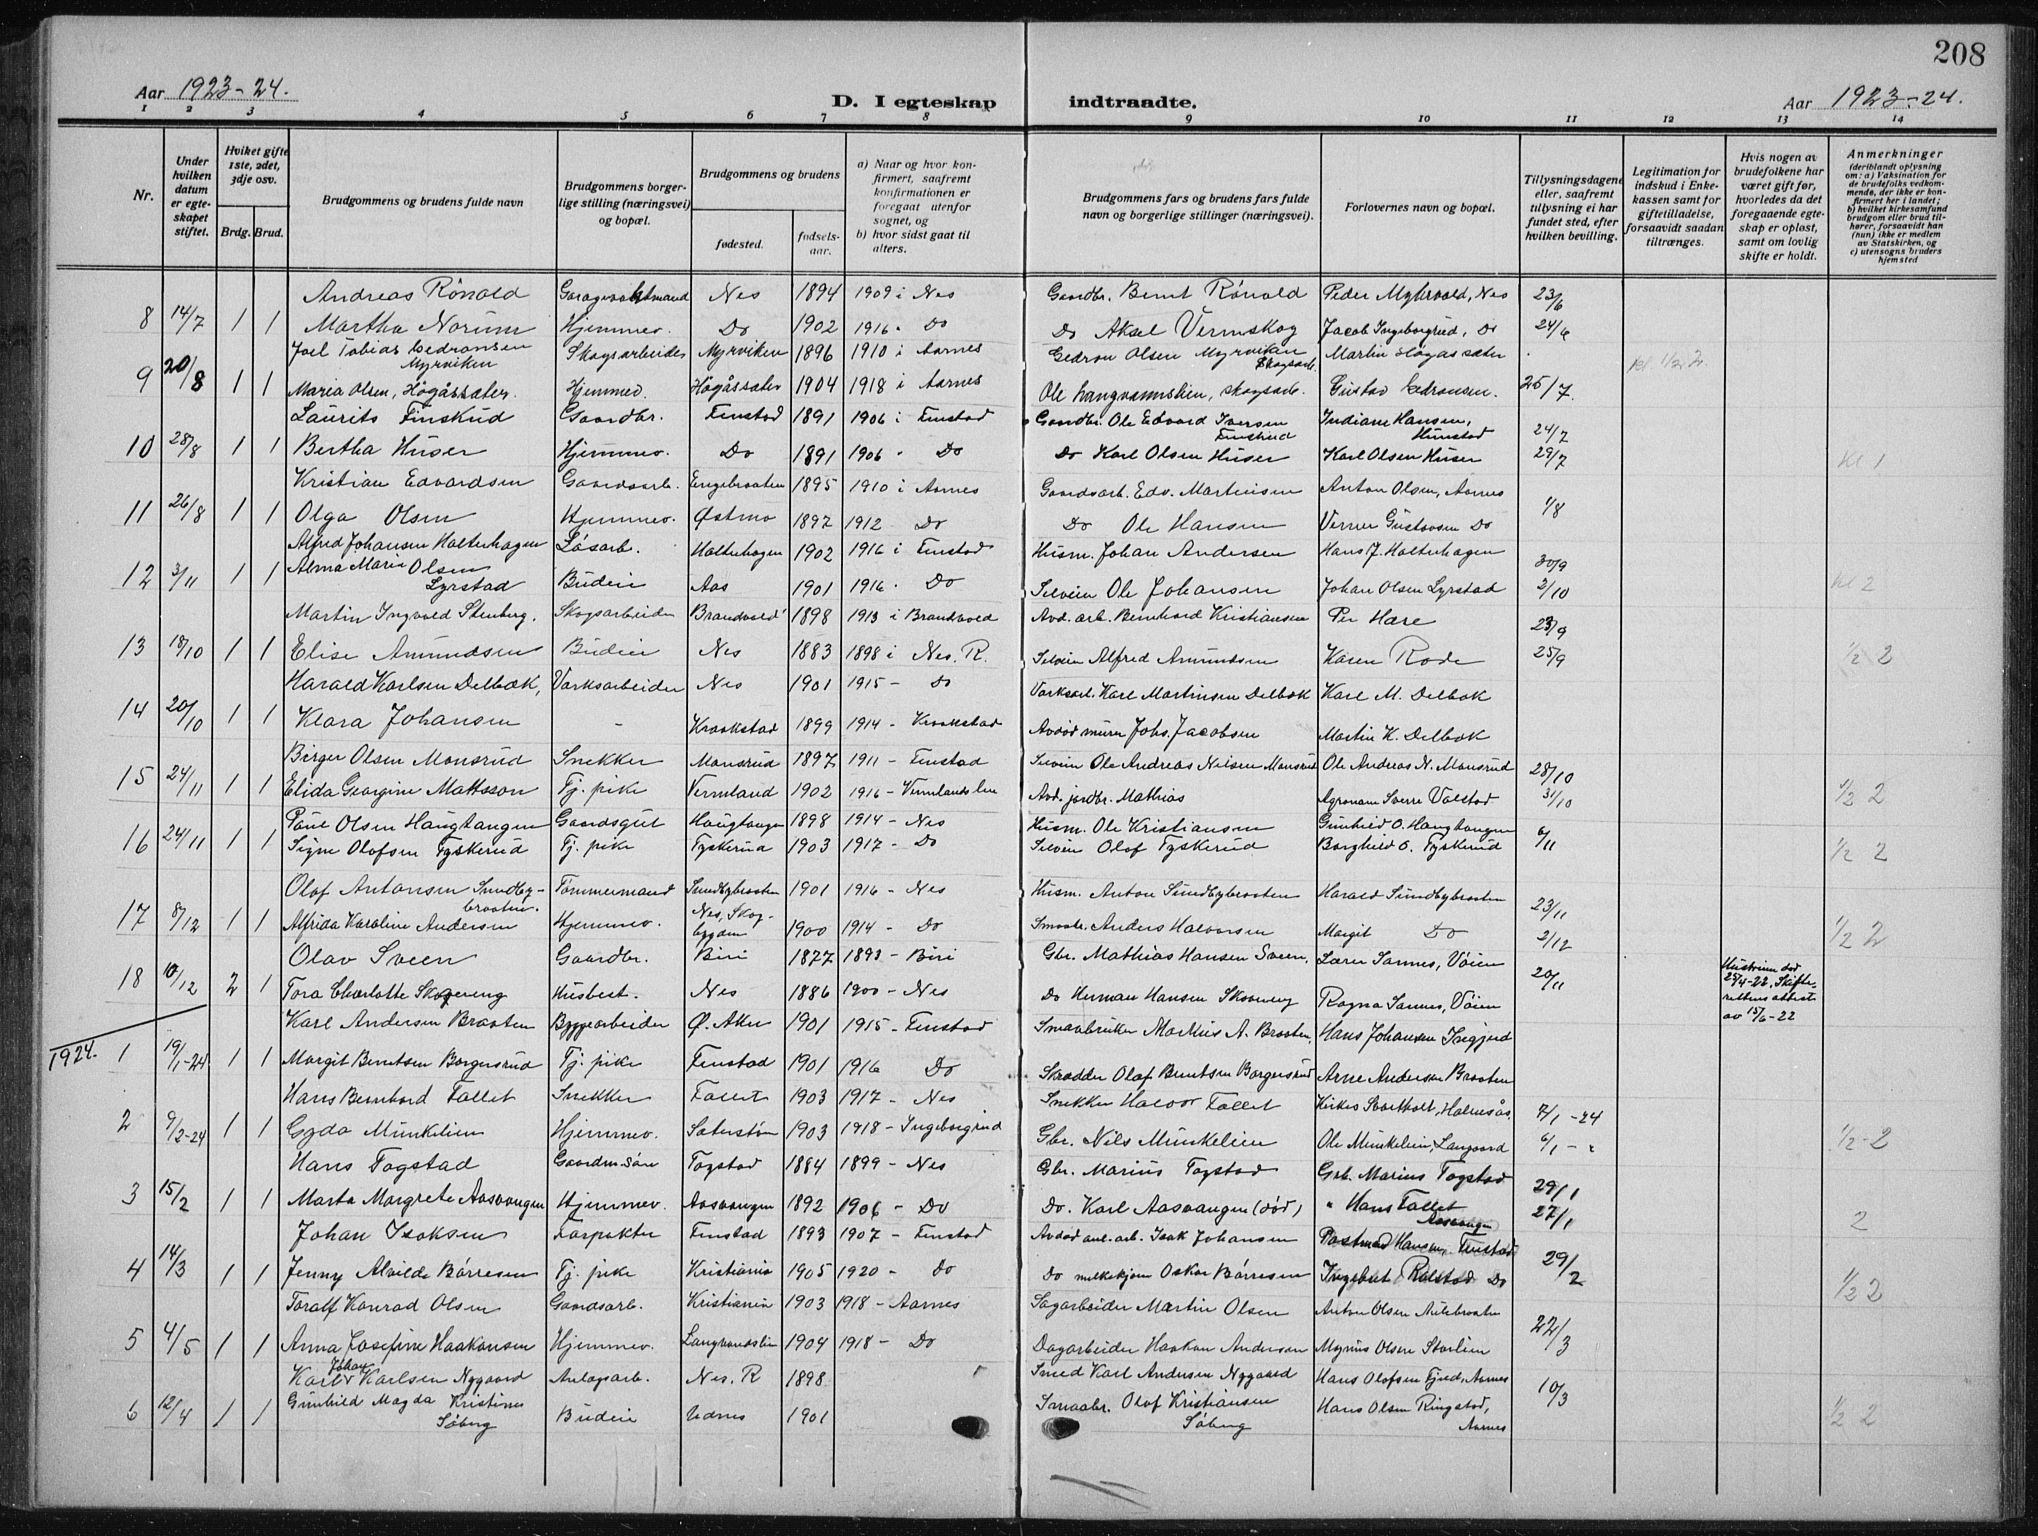 208
Aar 1923-24.
D. I egteskap indtraadte.
Aar 1923-24.
1 2 3 4 5 6 7 8 9 10 11 12 13 14
Nr.
Under hvilken datum er egteskapet stiftet.
Hviket gifte 1ste, 2det, 3dje osv.
Brdg. Brud.
Brudgommens og brudens fulde navn
Brudgommens borgerlige stilling (næringsvei) og bopæl.
Brudgommens og brudens
fødested.
fødselsaar.
a) Naar og hvor konfirmert, saafremt konfirmationen er foregaat utenfor sognet, og
b) hvor sidst gaat til alters.
Brudgommens fars og brudens fars fulde navn og borgerlige stillinger (næringsvei).
Forlovernes navn og bopæl.
Tillysningsdagene eller, saafremt tillysning ei har fundet sted, efter hvilken bevilling.
Legitimation for indskud i Enkekassen samt for giftetilladelse, forsaavidt saadan tiltrænges.
Hvis nogen av brudefolkene har været gift før, hvorledes da det foregaaende egteskap er opløst, samt om lovlig skifte er holdt.
Anmerkninger
(deriblandt oplysning om: a) Vaksination for de brudefolks vedkommende, der ikke er konfirmert her i landet; b) hvilket kirkesamfund brudgom eller brud tilhører, forsaavidt han (hun) ikke er medlem av Statskirken, og c) utensogns bruders hjemsted
8 14/7 1 1 Andreas Rónold Garagevaktmand Nes 1894 1909 i Nes Gaardbr. Bernt Rónold Peder Myhrvold, Nes 23/6
Martha Norum Hjemmev. Do 1902 1916 - Do Do Aksel Vermskog Jacob Ingeborgrud, Do 24/6
9 20/8 1 1 Joel Tobias Gedronsen Myrviken Skogsarbeider Myrviken 1896 1910 i Aarnes Gedron Olsen Myrviken Skogsarb. Martin Högåssæter
Maria Olsen, Högåssæter. Hjemmev. Högåssæter 1904 1918 i Aarnes Ole Langvannslien, skogsarb. Gustav Gedronsen. 25/7 kl. 1/2 2
10 28/8 1 1 Laurits Finskud Gaardbr. Fenstad 1891 1906 i Fenstad Gaardbr. Ole Edvard Iversen Finskud Indiane Hansen, Hunstad 24/7
Bertha Huser Hjemmev. Do 1891 1906 - Do Do Karl Olsen Huser Karl Olsen Huser 29/7 kl 1
11 26/8 1 1 Kristian Edvardsen Gaardsarb. Engebraaten 1895 1910 i Aarnes Gaardsarb. Edv. Martinsen Anton Olsen, Aarnes
Olga Olsen Hjemmev. Østmo 1897 1912 Do Do Ole Hansen Verner Gustavsen Do 1/8
12 3/11 1 1 Alfred Johansen Holterhagen Løsarb. Holterhagen 1902 1916 i Fenstad Husm. Johan Andersen Hans J. Holterhagen 30/9
Alma Marie Olsen Lyrstad Budeie Aas 1901 1916 - Do Selveier Ole Johansen Johan Olsen Lyrstad 2/10 kl 2
13 18/10 1 1 Martin Ingvald Stenberg. Skogsarbeider Brandvold 1898 1913 i Brandvold Avd. arb. Bernhard Kristiansen Per Hære 23/9
Elise Amundsen Budeie Nes 1883 1898 i Nes. R. Selveier Alfred Amundsen Karen Rode 25/9 1/2 2
14 20/10 1 1 Harald Karlsen Delbæk, Værksarbeider Nes 1901 1915 - Do Værksarb. Karl Martinsen Delbæk Karl M. Delbæk
Klara Johansen - Kraakstad 1899 1914 - Kraakstad Avdød murer Johs. Jacobsen Martin K. Delbæk
15 24/11 1 1 Birger Olsen Monsrud Snekker Monsrud 1897 1911 - Fenstad Selveier Ole Andreas Nilsen Monsrud Ole Andreas N. Monsrud 28/10
Elida Georgine Mattsson Tj. pike Vermland 1902 1916 - Vermlands len Avd. jordbr. Mathias Agronom Sverre Valstad 31/10 1/2 2
16 24/11 1 1 Paul Olsen Haugtangen Gaardsgut Haugtangen 1898 1914 - Nes Husm. Ole Kristiansen Gunhild O. Haugtangen 6/11
Signe Olofsen Tyskerud Tj. pike Tyskerud 1903 1917 - Do Selveier Olof Tyskerud Borghild O. Tyskerud 1/2 2
17 8/12 1 1 Olof Antonsen Sundbybraaten. Tømmermand Sundbybraaten 1901 1916 - Nes Husm. Anton Sundbybraaten Harald Sundbybraaten 23/11
Alfrida Karoline Andersen Hjemmev. Nes, Skogbygden 1900 1914 - Do Smaabr. Anders Halvorsen Margit Do 2/12 1/2 2
18 10/12 2 1 Olav Sveen Gaardbr. Biri 1877 1893 - Biri Gbr. Mathias Hansen Sveen, Lærer Sannes, Vöien 20/11 Hustruen død 25/4-22, Skifterettens attest av 15/6-22
Tora Charlotte Skogereng Husbest. Nes 1886 1900 - Nes Do Herman Hansen Skovereng Ragna Sannes, Vöien
1924. 1 19/1-24 1 1 Karl Andersen Braaten Byggearbeider Ø. Aker 1901 1915 - Fenstad Smaabruker Markus A. Braaten, Hans Johansen Ingjerd
Margit Berntsen Borgersrud Tj. pike Fenstad 1901 1916 Do Skrædder Olaf Berntsen Borgersrud Arne Andersen Braaten
2 9/2-24 1 1 Hans Bernhard Fallet Snekker Fallet 1903 1917 - Nes Snekker Halvor Fallet Kirkes Svartholt, Halmsås, 7/1-24
Gyda Munkelien Hjemmev. Sæterstøn 1903 1918 - Ingeborgrud Gbr. Nils Munkelien Ole Munkelien, Langaard 6/1 - " 1/2-2
3 15/2 1 1 Hans Togstad Gaardm. Søn Togstad 1884 1899 - Nes Gbr. Marius Togstad Grb. Marius Togstad 29/1
Marta Margrete Aasvangen Hjemmev. Aasvangen 1892 1906 - Do Do. Karl Aasvangen (død) " Hans Fallet Aasvangen 27/1 2
4 14/3 1 1 Johan Isaksen Forpakter Fenstad 1893 1907 - Fenstad Avdød anl. arb. Isak Johansen Postmand Hansen, Fenstad 29/2
Jenny Alvilde Børresen Tj. pike Kristiania 1905 1920 - Do Do melkekjører Oskar Børresen Ingebret Rolstad Do 1/2 2
5 4/5 1 1 Toralf Konrad Olsen Gaardsarb. Kristiania 1903 1918 - Aarnes Sagarbeider Martin Olsen Anton Olsen Aulibraaten
Anna Josefine Haakonsen Hjemmev. Langvandslien 1904 1918 - Do Dagarbeider Haakon Andersen Magnus Olsen Storlien 22/3
6 12/4 1 1 Karl Johan Karlsen Nygaard Anlægsarb. Nes. R 1898 Smed Karl Andersen Nygaard Hans Olofsen Fjeld, Aarnes 10/3
Gunhild Magda Kristine Søberg Budeie Udnes 1901 Smaabr. Olof Kristiansen Søberg Hans Olsen Ringstad, Aarnes 1/2 2